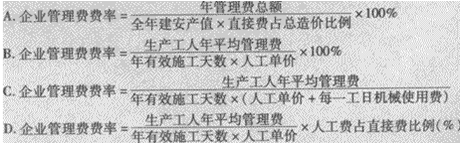 A. 企业管理费费率=年管理费总额/全年建安产值×直接费占总造价比例×100%
B. 企业管理费费率=生产工人年平均管理费/年有效施工天数×人工单价×100%
C. 企业管理费费率=生产工人年平均管理费/年有效施工天数×(人工单价+每一工日机械使用费)×100%
D. 企业管理费费率=生产工人年平均管理费/年有效施工天数×人工单价×人工费占直接费比例(%)